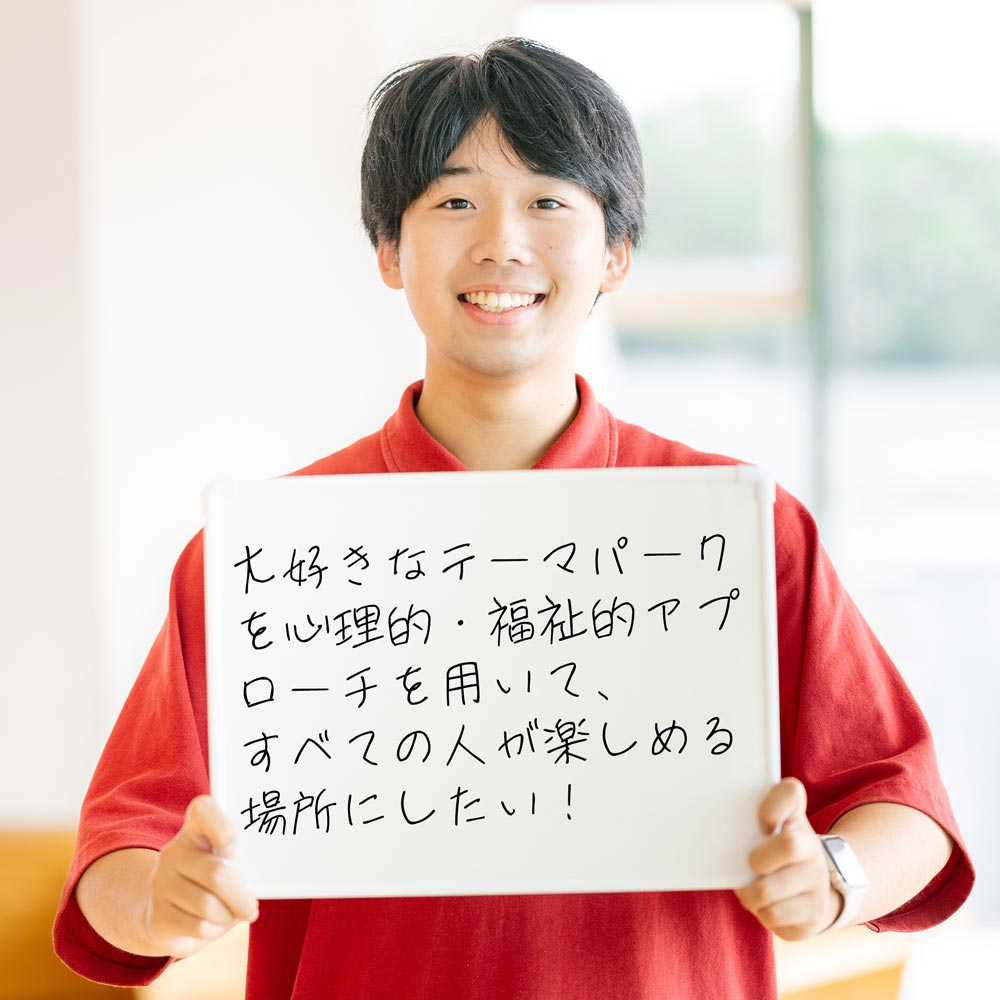 大好きなテーマパーク
を心理的・福祉的アプ
ローチを用いて、
すべての人が楽しめる
場所にしたい！